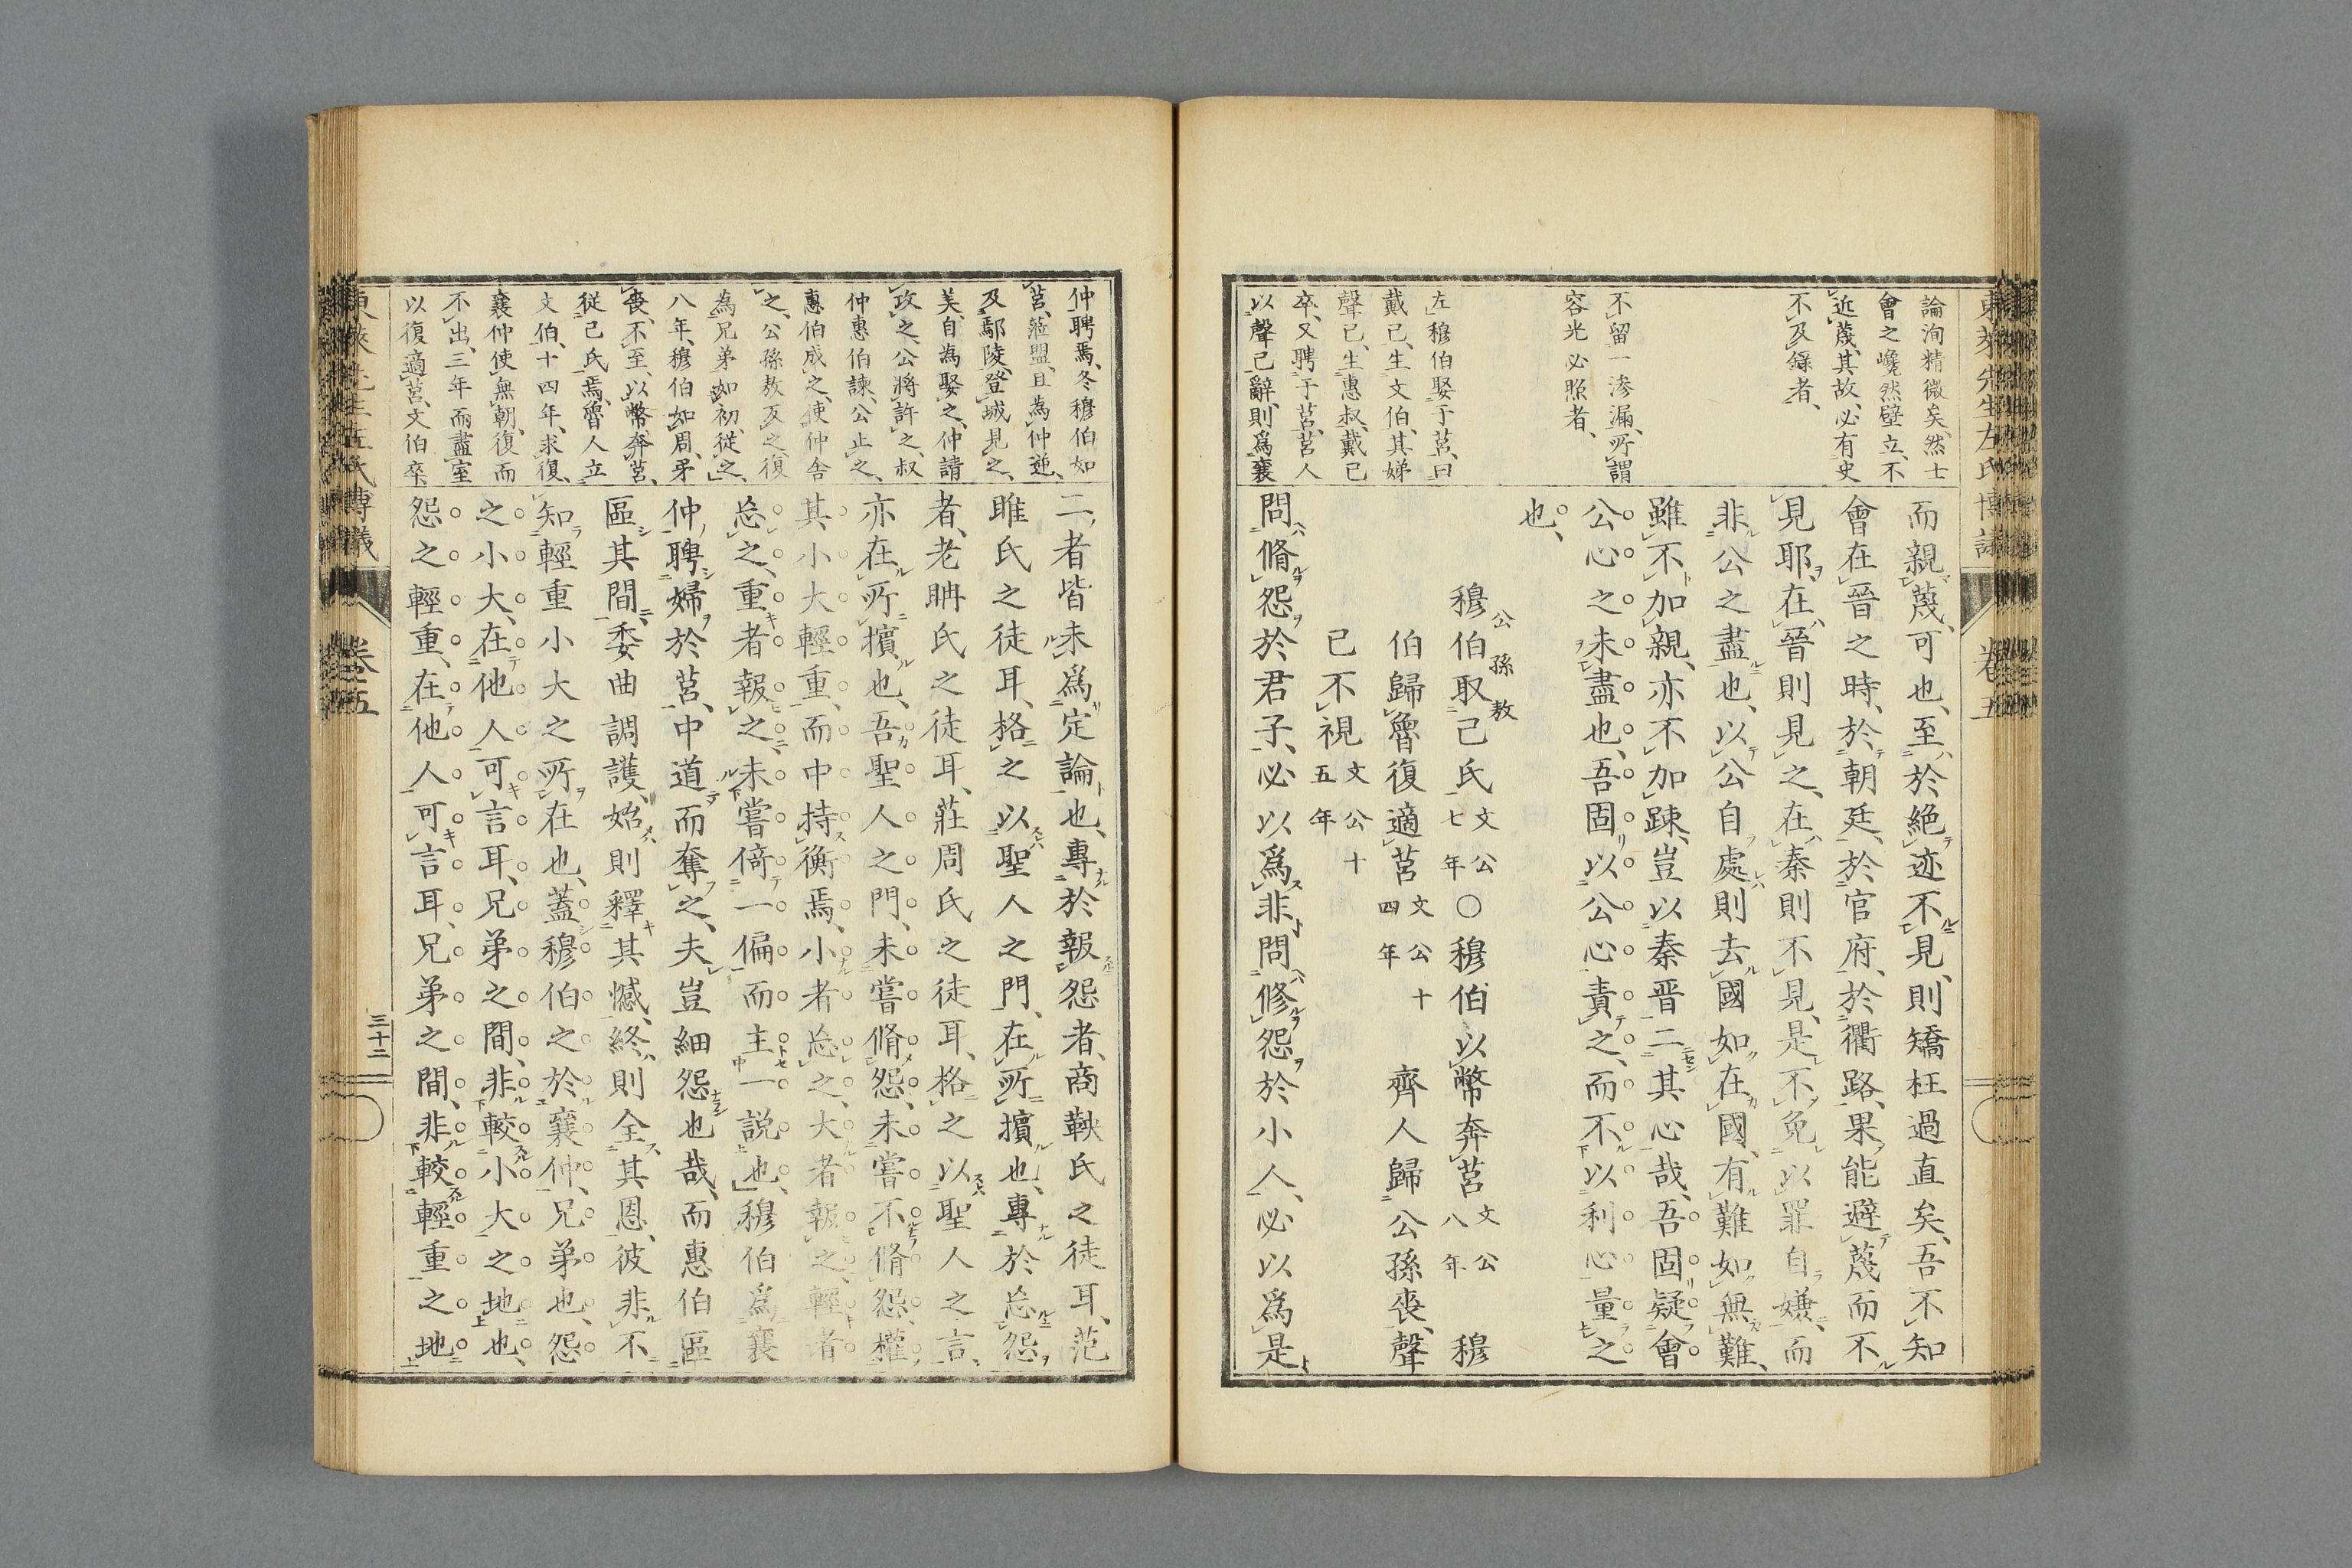 東萊先生左氏博議
卷五
論洵精微矣、然士
會之巉然壁立、不
近蔑、其故、必有史
不及錄者、
不留一滲漏、所謂
容光必照者、
左穆伯娶于莒、曰
戴己、生文伯、其娣
聲己、生惠叔、戴己
卒、又聘于莒、莒人
以聲己辭、則爲襄
而親蔑、可也、至於絕迹不見、則矯枉過直矣、吾不知
會在晉之時、於朝廷、於官府、於衢路、果能避蔑而不
見耶、在晉則見之、在秦則不見、是不免以罪自嫌、而
非公之盡也、以公自處、則去國如在國、有難如無難、
雖不加親、亦不加踈、豈以秦晋二其心哉、吾固疑會
公心之未盡也、吾固以公心責之、而不以利心量之
也、
穆伯取己氏文公七年〇穆伯以幣奔莒文公八年 穆
公孫敖
伯歸魯復適莒文公十四年 齊人歸公孫喪、聲
己不視文公十五年
問脩怨於君子、必以爲非、問修怨於小人、必以爲是
仲聘焉、冬穆伯如
莒、蒞盟、且為仲逆、
及鄢陵、登城見之、
美、自為娶之、仲請
攻之、公將許之、叔
仲惠伯諫、公止之、
惠伯成之、使仲舍
之、公孫敖反之、復
為兄弟如初、從之、
八年、穆伯如周、弔
喪、不至、以幣奔莒、
從己氏焉、魯人立
文伯、十四年、求復、
襄仲使無朝、復而
不出、三年而盡室
以復適莒、文伯卒
二者皆未爲定論也、專於報怨者、商鞅氏之徒耳、范
雎氏之徒耳、格之以聖人之門、在所擯也、專於忘怨
者、老聃氏之徒耳、莊周氏之徒耳、格之以聖人之言、
亦在所擯也、吾聖人之門、未嘗脩怨、未嘗不脩怨、權
其小大輕重、而中持衡焉、小者忘之、大者報之、輕者
忘之、重者報之、未嘗倚一偏而主一說也、穆伯爲襄
仲聘婦於莒、中道而奪之、夫豈細怨也哉、而惠伯區
區其間、委曲調護、始則釋其憾、終則全其恩、彼非不
知輕重小大之所在也、蓋穆伯之於襄仲、兄弟也、怨
之小大、在他人可言耳、兄弟之間、非較小大之地也、
怨之輕重、在他人可言耳、兄弟之間、非較輕重之地
東萊先生左氏博議
卷五
三十二